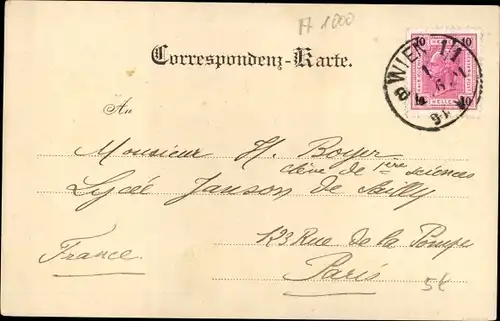 A 1000
Correspondenz-Karte.
10 10
HELLER
WIEN 1/1
An
Monsieur H. Boyer
élève de 1ère sciences
Lycée Janson de Sailly
123 Rue de la Pompe
France
Paris